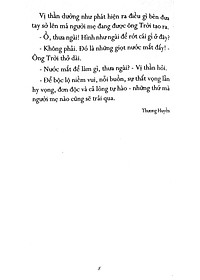 Vị thần dường như phát hiện ra điều gì bèn đưa
tay sờ lên má người mẹ đang được ông Trời tạo ra.
- Ồ, thưa ngài! Hình như ngài để rớt cái gì ở đây?
- Không phải. Đó là những giọt nước mắt đấy! -
Ông Trời thở dài.
- Nước mắt để làm gì, thưa ngài? - Vị thần hỏi.
- Để bộc lộ niềm vui, nỗi buồn, sự thất vọng lẫn
hy vọng, đơn độc và cả lòng tự hào - những thứ mà
người mẹ nào cũng sẽ trải qua.
Thương Huyền